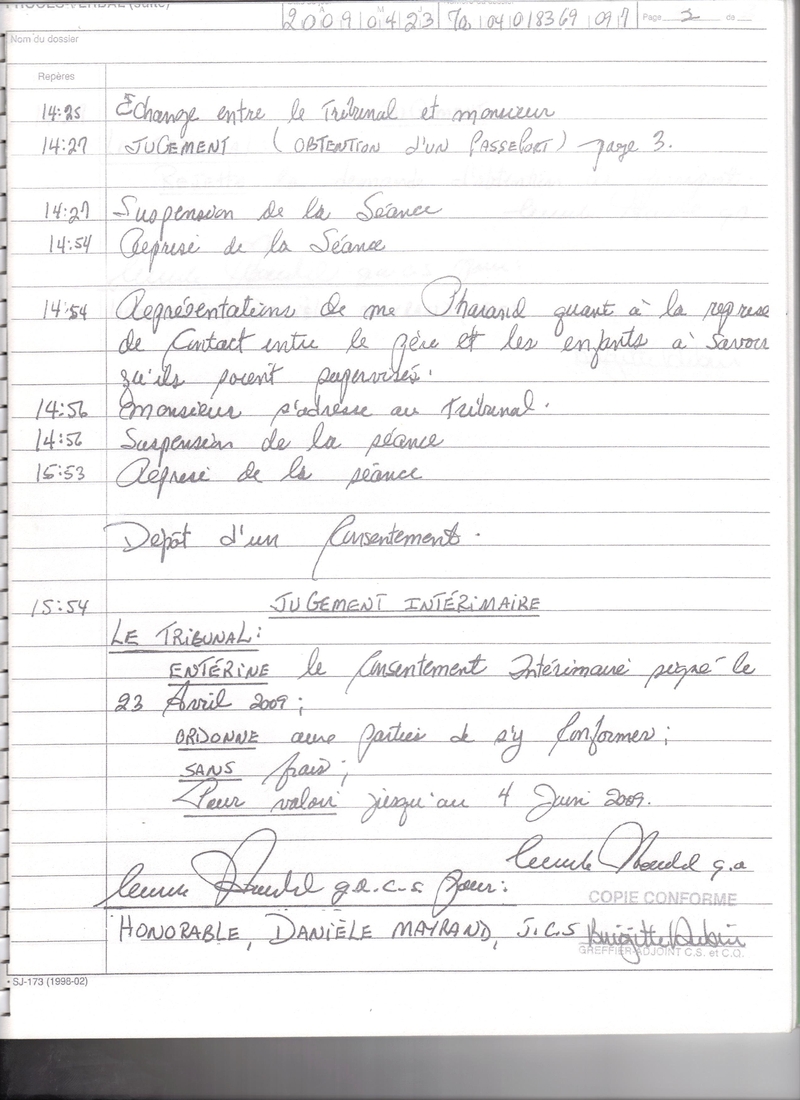 PROCÈS-VERBAL (suite)
2009 04 23 04 018369 097 Page 2 de
Nom du dossier
Repères
14:25 Échange entre le Tribunal et monsieur
14:27 JUGEMENT (OBTENTION d'UN PASSEPORT) page 3.
14:27 Suspension de la Séance
14:54 Reprise de la Séance
14:54 Représentations de me Pharand quant à la reprise
de Contact entre le père et les enfants à savoir
qu'ils soient supervisés.
14:56 monsieur s'adresse au Tribunal.
14:56 Suspension de la séance
15:53 Reprise de la séance
Depôt d'un Consentement.
15:54 JUGEMENT INTÉRIMAIRE
LE TRIBUNAL:
ENTÉRINE le Consentement Intérimaire signé le
23 Avril 2009;
ORDONNE aux parties de s'y Conformer;
SANS frais;
Pour valoir jusqu'au 4 Juin 2009.
g.a
g.a.c.s pour:
COPIE CONFORME
HONORABLE, DANIÈLE MAYRAND, J.C.S Brigitte Aubin
GREFFIER-ADJOINT C.S. et C.Q.
• SJ-173 (1998-02)